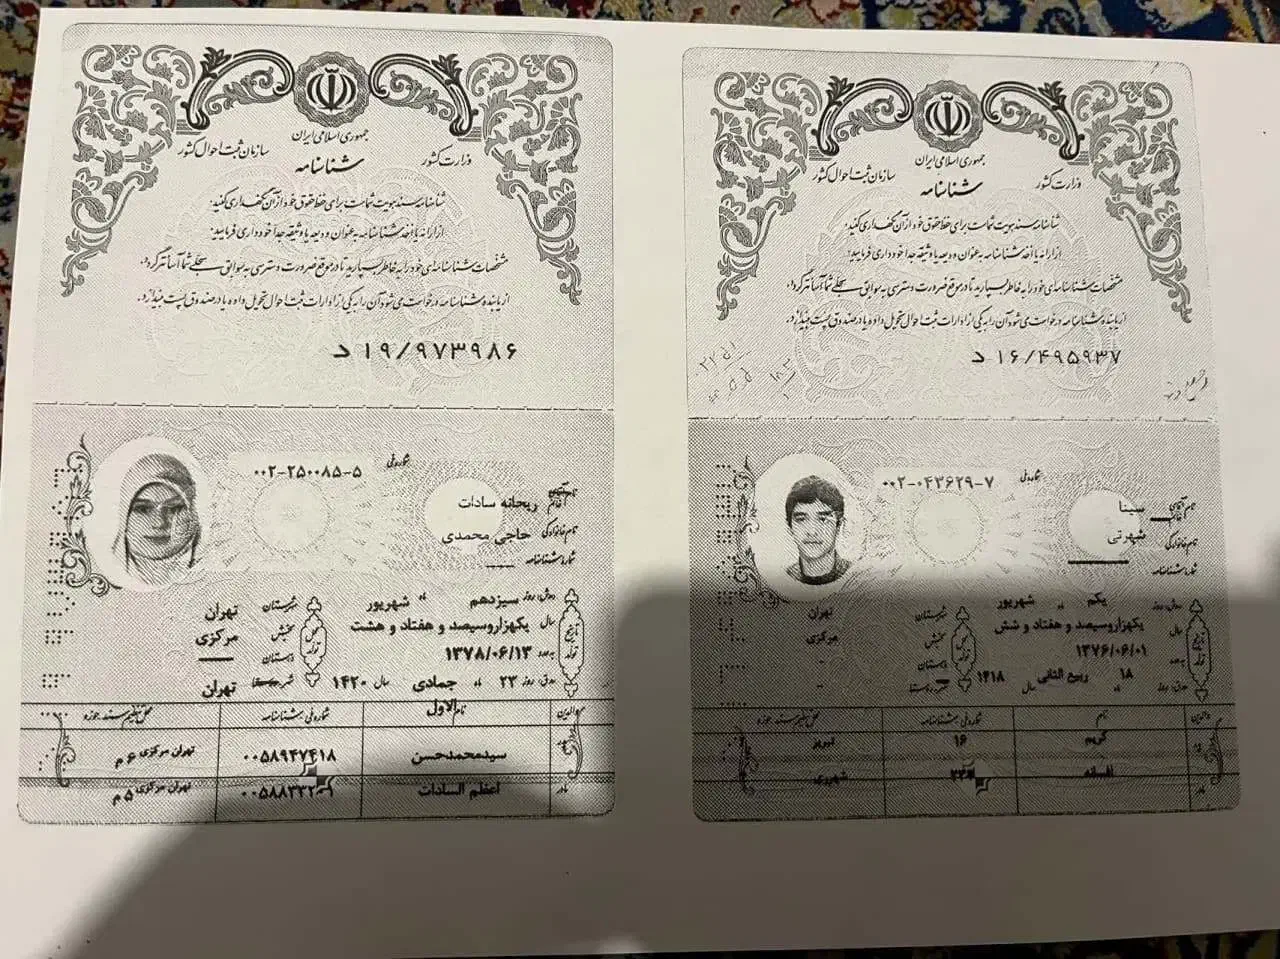 جمهوری اسلامی ایران
وزارت کشور
سازمان ثبت احوال کشور
شناسنامه
شناسنامه سند هویت شماست برای حفظ حقوق خود از آن نگهداری کنید.
از ارائه یا اخذ شناسنامه به عنوان ودیعه یا وثیقه جداً خودداری فرمایید.
مشخصات شناسنامه‌ای خود را به خاطر بسپارید تا در موقع ضرورت دسترسی به سوابق سجلی شما آسانتر گردد.
از یابنده شناسنامه درخواست می‌شود آن را به یکی از ادارات ثبت احوال تحویل داده یا در صندوق پست بیندازد.
د ۱۶/۴۹۵۹۳۷
شماره ملی ۰۰۲-۰۴۳۶۲۹-۷
نام آقای سینا
نام خانوادگی شهرتی
شماره شناسنامه
روز یکم شهریور
سال یکهزاروسیصد و هفتاد و شش
به عدد ۱۳۷۶/۰۶/۰۱
۱۸ ربیع الثانی سال ۱۴۱۸
تاریخ تولد
محل تولد
شهرستان تهران
بخش مرکزی
دهستان -
والدین نام شماره ملی/شناسنامه محل تنظیم سند/حوزه
کریم ۱۶ تبریز
مادر افسانه
جمهوری اسلامی ایران
وزارت کشور
سازمان ثبت احوال کشور
شناسنامه
شناسنامه سند هویت شماست برای حفظ حقوق خود از آن نگهداری کنید.
از ارائه یا اخذ شناسنامه به عنوان ودیعه یا وثیقه جداً خودداری فرمایید.
مشخصات شناسنامه‌ای خود را به خاطر بسپارید تا در موقع ضرورت دسترسی به سوابق سجلی شما آسانتر گردد.
از یابنده شناسنامه درخواست می‌شود آن را به یکی از ادارات ثبت احوال تحویل داده یا در صندوق پست بیندازد.
د ۱۹/۹۷۳۹۸۶
شماره ملی ۰۰۲-۲۵۰۰۸۵-۵
نام خانم ریحانه سادات
نام خانوادگی حاجی محمدی
شماره شناسنامه
روز سیزدهم شهریور
سال یکهزاروسیصد و هفتاد و هشت
به عدد ۱۳۷۸/۰۶/۱۳
۲۳ جمادی الاول سال ۱۴۲۰
تاریخ تولد
محل تولد
شهرستان تهران
بخش مرکزی
دهستان
شهر تهران
والدین نام شماره ملی/شناسنامه محل تنظیم سند/حوزه
سیدمحمدحسن ۰۰۵۸۹۴۷۴۱۸ تهران مرکزی ۶ م
مادر اعظم السادات تهران مرکزی ۵ م